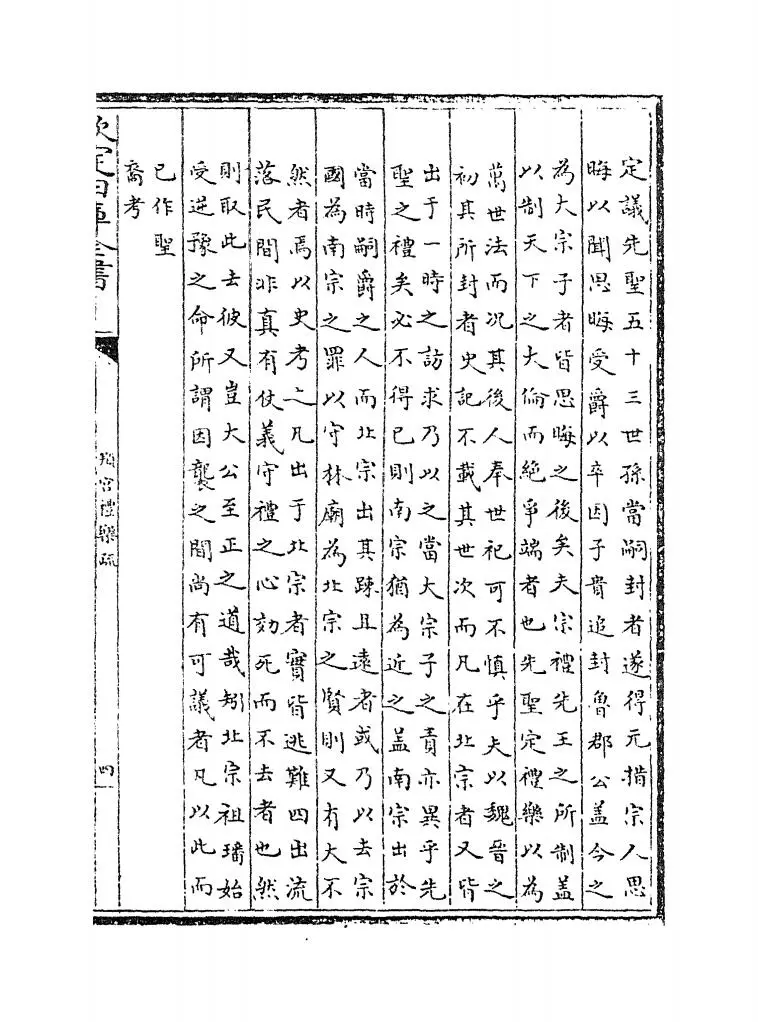 定議先聖五十三世孫當嗣封者遂得元措宗人思
晦以聞思晦受爵以卒因子貴追封魯郡公盖今之
為大宗子者皆思晦之後矣夫宗禮先王之所制盖
以制天下之大倫而絶爭端者也先聖定禮樂以為
萬世法而况其後人奉世祀可不慎乎夫以魏晉之
初其所封者史記不載其世次而凡在北宗者又皆
出于一時之訪求乃以之當大宗子之責亦異乎先
聖之禮矣必不得已則南宗猶為近之盖南宗出於
當時嗣爵之人而北宗出其踈且遠者或乃以去宗
國為南宗之罪以守林廟為北宗之賢則又有大不
然者焉以史考之凡出于北宗者實皆逃難四出流
落民間非真有仗義守禮之心効死而不去者也然
則取此去彼又豈大公至正之道哉矧北宗祖璠始
受逆豫之命所謂因襲之間尚有可議者凡以此而
已作聖
裔考
欽定四庫全書
頖宫禮樂疏
四